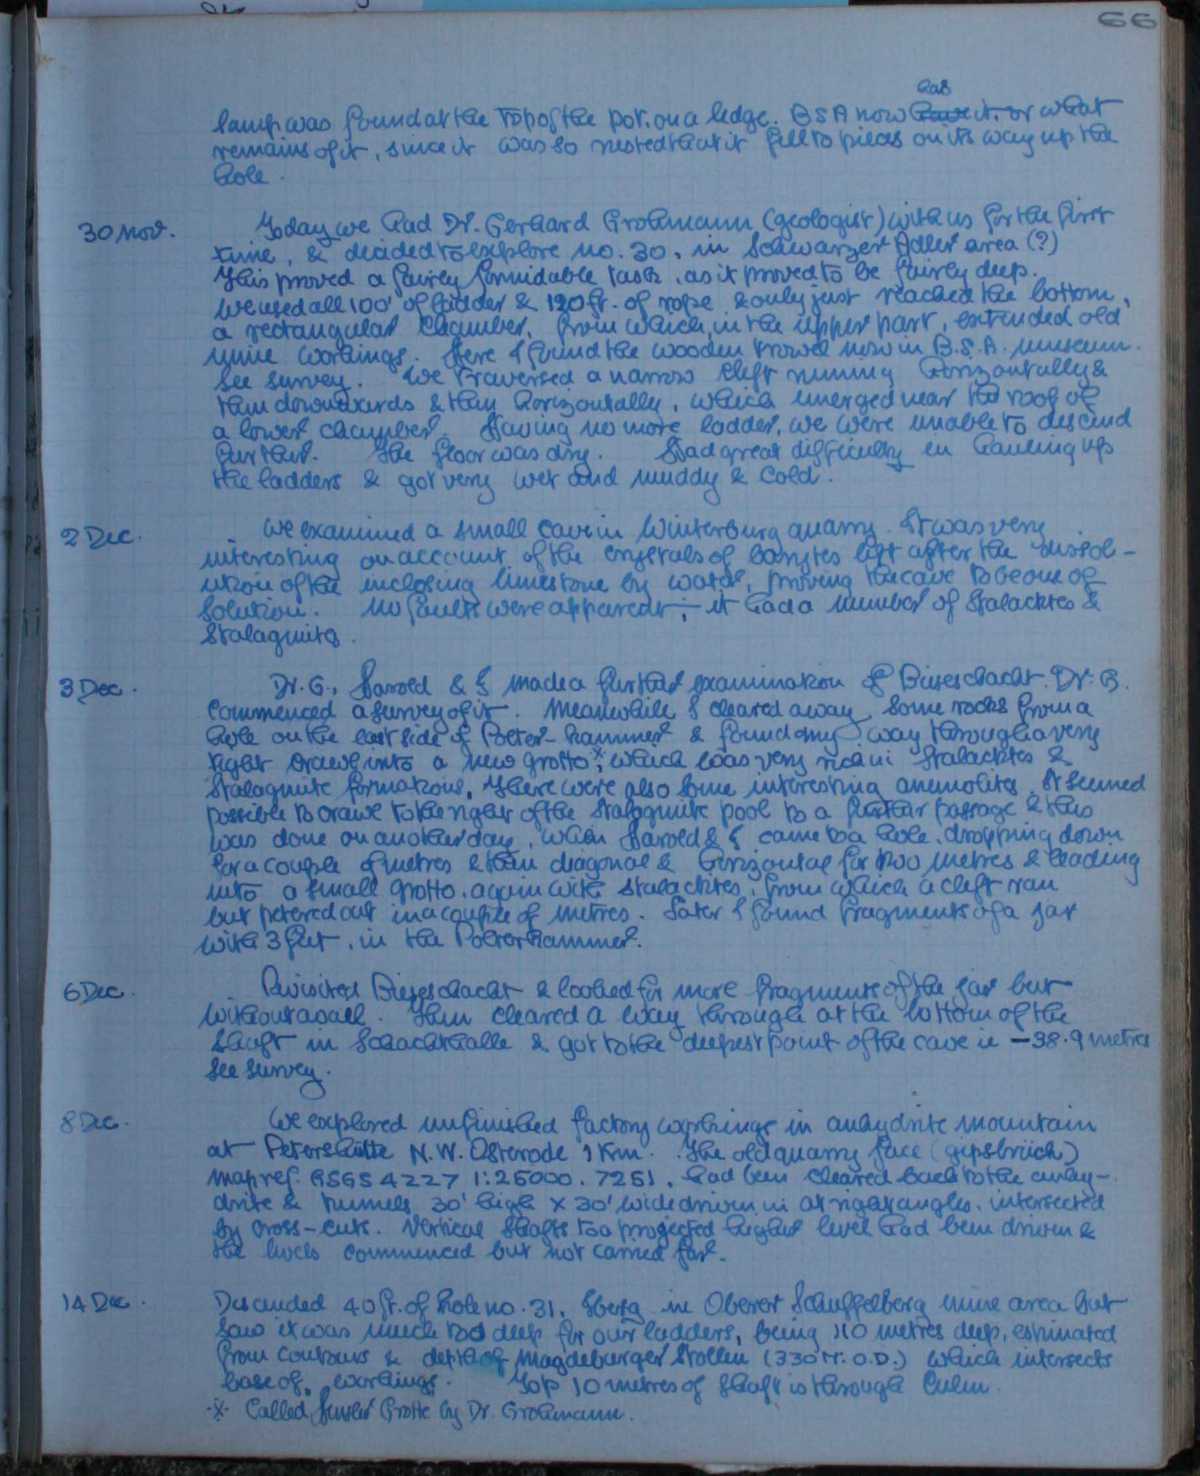 66
has
lamp was found at the top of the pot, on a ledge. BSA now have it, or what
remains of it, since it was so rusted that it fell to pieces on its way up the
hole.
30 Nov. Today we had Dr. Gerhard Grohmann (geologist) with us for the first
time, & decided to explore no. 30, in Schwarzer Adler area (?)
This proved a fairly formidable task, as it proved to be fairly deep.
We used all 100' of ladder & 120 ft. of rope & only just reached the bottom,
a rectangular chamber, from which, in the upper part, extended old
mine workings. Here I found the wooden trowel now in B.S.A. museum.
See survey. We traversed a narrow cleft running horizontally &
then downwards & then horizontally, which emerged near the roof of
a lower chamber. Having no more ladder, we were unable to descend
further. The floor was dry. Had great difficulty in hauling up
the ladders & got very wet and muddy & cold.
2 Dec. We examined a small cave in Winterburg quarry. It was very
interesting on account of the crystals of barytes left after the dissol-
ution of the inclosing limestone by water, proving the cave to be one of
solution. No faults were apparent, – it had a number of stalactites &
stalagmites.
3 Dec. Dr. G., Harold & I made a further examination of Bieseschacht. Dr. G.
commenced a survey of it. Meanwhile I cleared away some rocks from a
hole on the east side of Polter-kammer & found my way through a very
tight crawl into a new grotto*, which was very rich in stalactites &
stalagmite formations. There were also some interesting anemolites. It seemed
possible to crawl to the right of the stalagmite pool to a further passage & this
was done on another day, when Harold & I came to a hole, dropping down
for a couple of metres & then diagonal & horizontal for two metres & leading
into a small grotto, again with stalactites, from which a cleft ran
but petered out in a couple of metres. Later I found fragments of a jar
with 3 feet, in the Polterkammer.
6 Dec. Revisited Bieseschacht & looked for more fragments of the jar but
without avail. Then cleared a way through at the bottom of the
shaft in Schachthalle & got to the deepest point of the cave ie –38.9 metres
see survey.
8 Dec. We explored unfinished factory workings in anhydrite mountain
at Petershütte N.W. Osterode 1 Km. The old quarry face (gipsbrüch)
map ref. GSGS 4227 1:25000. 7251, had been cleared back to the anhy-
drite & tunnels 30' high x 30' wide driven in at right angles, intersected
by cross-cuts. Vertical shafts to a projected higher level had been driven &
the levels commenced but not carried far.
14 Dec. Descended 40 ft. of hole no. 31, Iberg in Oberer Schuffelberg mine area but
saw it was much too deep for our ladders, being 110 metres deep, estimated
from contours & depth of Magdeburger Stollen (330 m. O.D.) which intersects
base of workings. Top 10 metres of shaft is through Culm.
* Called Grotte by Dr. Grohmann.